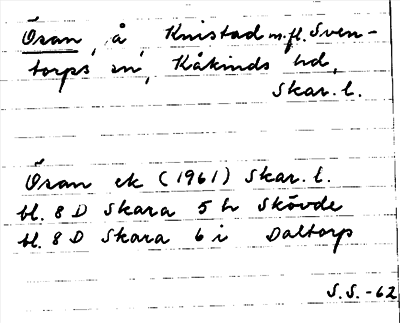 Ösan, å, Knistad m.fl. Sven-
torps sn, Kåkinds hd,
Skar. l.
Ösan ek (1961) Skar. l.
bl. 8 D Skara 5 h Skövde
bl. 8 D Skara 6 i Daltorp
S.S. -62